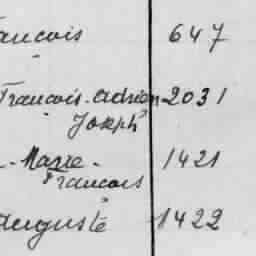 ancois 647
Francois. Adrien 2031
Joseph
- Marie - 1421
Francois
Auguste 1422